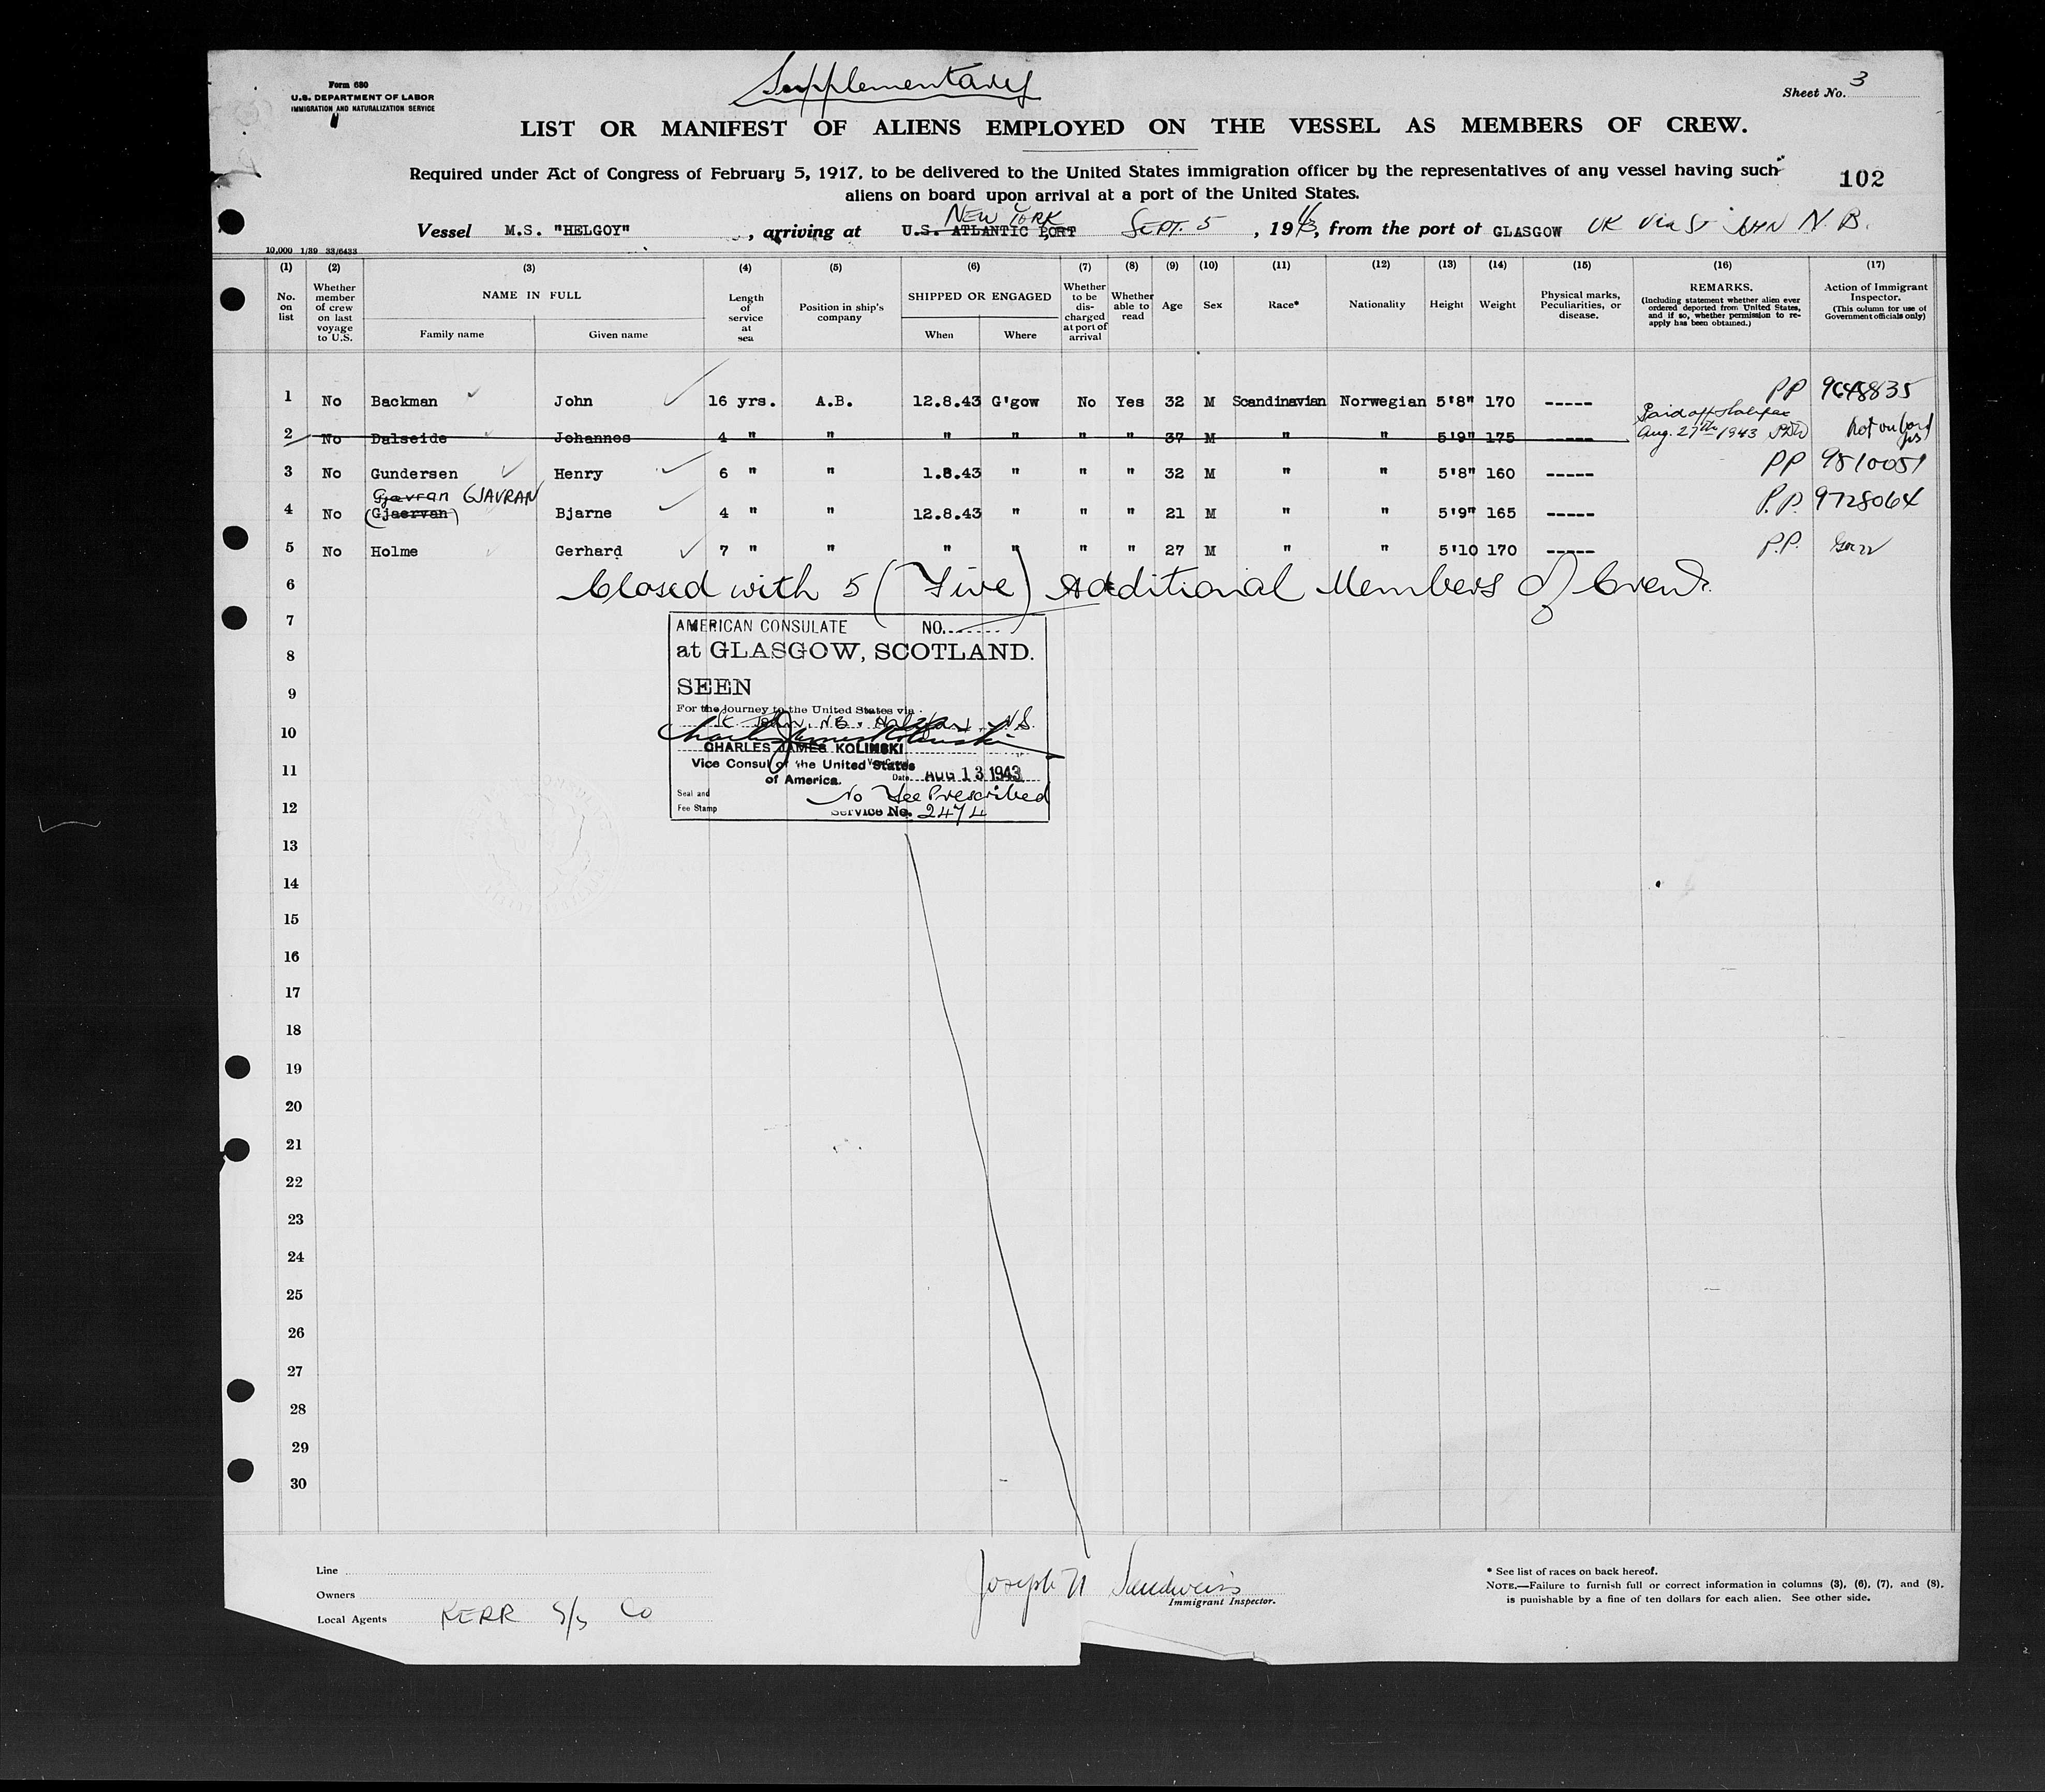 Supplementary
Form 680
U.S. DEPARTMENT OF LABOR
IMMIGRATION AND NATURALIZATION SERVICE
Sheet No. 3
LIST OR MANIFEST OF ALIENS EMPLOYED ON THE VESSEL AS MEMBERS OF CREW.
Required under Act of Congress of February 5, 1917, to be delivered to the United States immigration officer by the representatives of any vessel having such
aliens on board upon arrival at a port of the United States.
102
NEW YORK
Vessel M.S. "HELGOY", arriving at U.S. ATLANTIC PORT SEPT. 5, 1943, from the port of GLASGOW UK via St JOHN N.B.
10,000 1/39 33/6433
(1) (2) (3) (4) (5) (6) (7) (8) (9) (10) (11) (12) (13) (14) (15) (16) (17)
No. on list
Whether member of crew on last voyage to U.S.
NAME IN FULL
Family name
Given name
Length of service at sea
Position in ship's company
SHIPPED OR ENGAGED
When
Where
Whether to be discharged at port of arrival
Whether able to read
Age
Sex
Race*
Nationality
Height
Weight
Physical marks, Peculiarities, or disease.
REMARKS.
(Including statement whether alien ever ordered deported from United States, and if so, whether permission to re-apply has been obtained.)
Action of Immigrant Inspector.
(This column for use of Government officials only)
1 No Backman John 16 yrs. A.B. 12.8.43 G'gow No Yes 32 M Scandinavian Norwegian 5'8" 170 ----- PP
Paid off Halifax
2 No Dalseide Johannes 4 " " " " " " 37 M " " 5'9" 175 ----- Aug. 27th 1943 not on board
3 No Gundersen Henry 6 " " 1.8.43 " " " 32 M " " 5'8" 160 ----- PP 9510051
Gjavran GJAVRAN
4 No (Gjaervan) Bjarne 4 " " 12.8.43 " " " 21 M " " 5'9" 165 ----- P.P. 9728064
5 No Holme Gerhard 7 " " " " " " 27 M " " 5'10 170 ----- P.P.
6 Closed with 5 (Five) Additional Members of Crew.
7
8
9
10
11
12
13
14
15
16
17
18
19
20
21
22
23
24
25
26
27
28
29
30
AMERICAN CONSULATE NO.
at GLASGOW, SCOTLAND.
SEEN
For the journey to the United States via
St. John, N.B. Halifax, N.S.
CHARLES JAMES KOLINSKI
Vice Consul of the United States
of America. Date AUG 13 1943
Seal and
Fee Stamp
No Fee Prescribed
Service No. 2474
Line
Owners
Local Agents KERR S/S Co
Joseph Sandweiss
Immigrant Inspector.
* See list of races on back hereof.
NOTE.—Failure to furnish full or correct information in columns (3), (6), (7), and (8),
is punishable by a fine of ten dollars for each alien. See other side.